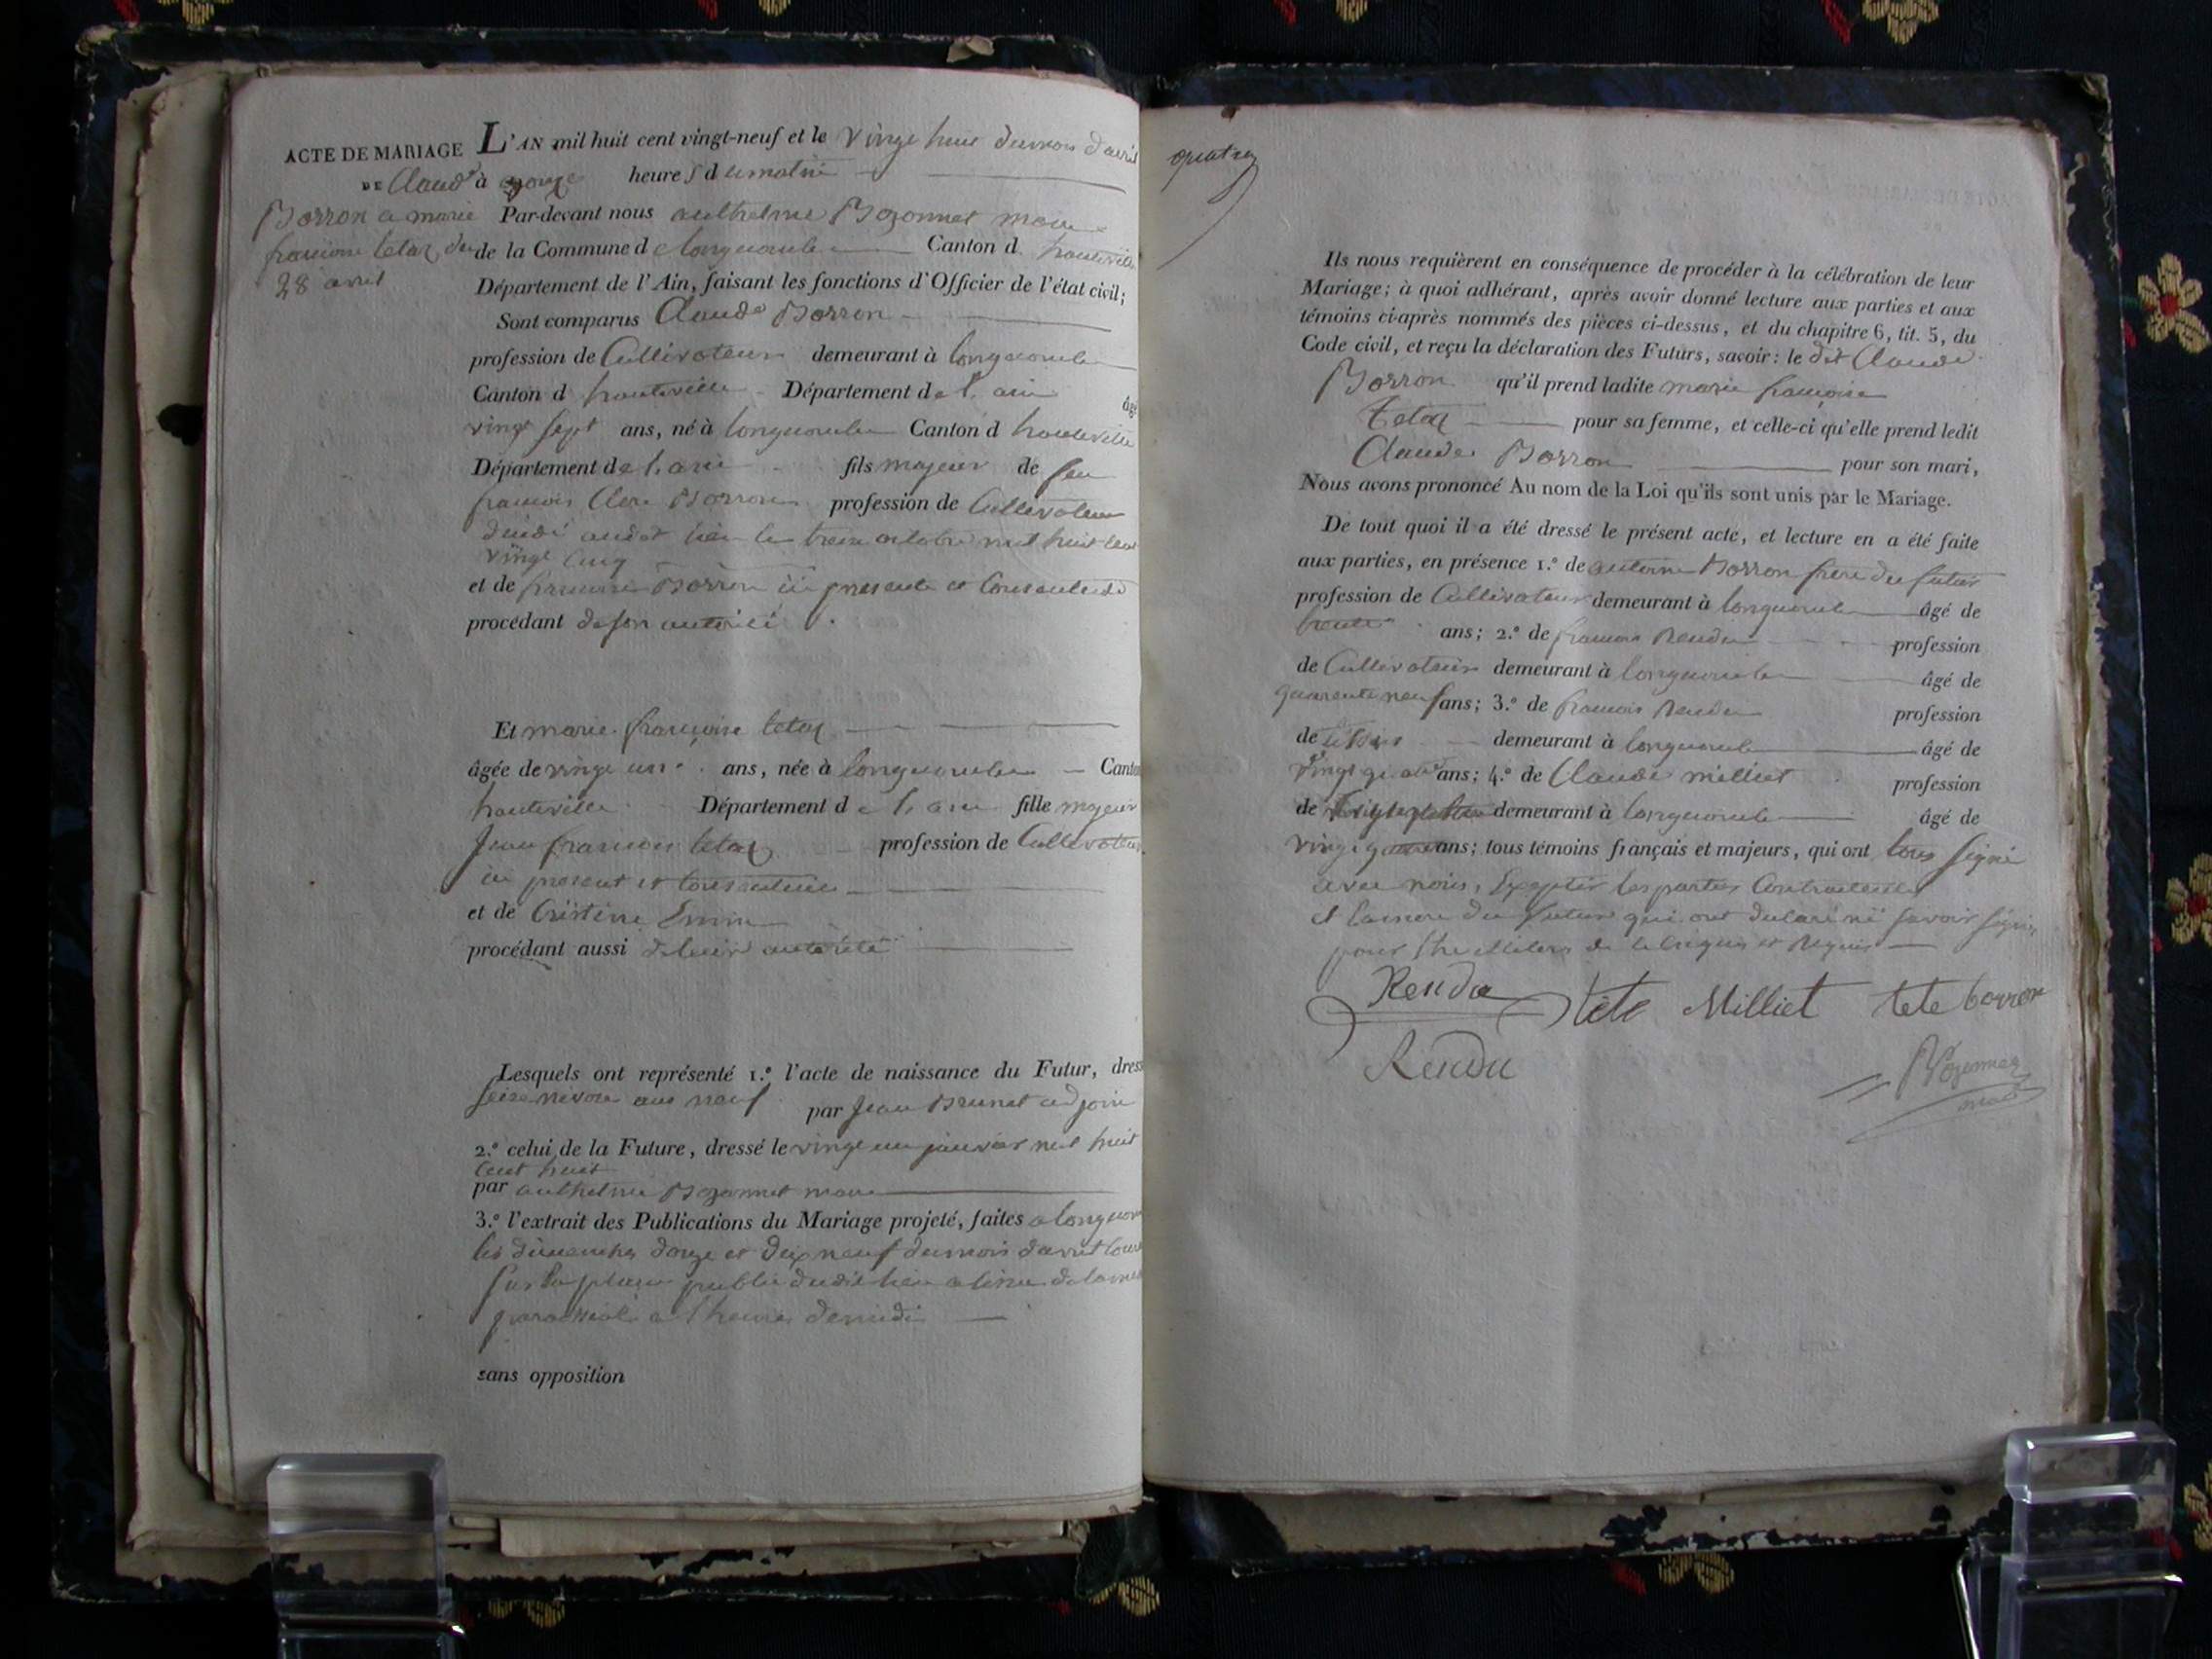 ACTE DE MARIAGE
DE Claude
Borron a marie
françoise tetaz du
28 avril
L'AN mil huit cent vingt-neuf et le vingt huit du mois d'avril
à onze heures du matin
Par-devant nous anthelme Bozonnet maire
de la Commune de longecombe Canton d. hauteville
Département de l'Ain, faisant les fonctions d'Officier de l'état civil;
Sont comparus Claude Borron
profession de Cultivateur demeurant à longecombe
Canton d hauteville Département de l'ain âgé
vingt sept ans, né à longecombe Canton d hauteville
Département de l'ain fils majeur de feu
francois Clere Borron profession de Cultivateur
décédé audit lieu le treize octobre mil huit cent
vingt cinq
et de Borron ici presente et Consentente
procédant de son autorité
Et marie françoise tetaz
âgée de vingt un ans, née à longecombe Canton
hauteville Département de l'ain fille majeur
Jean francois tetaz profession de Cultivateur
ici present et Consentent
et de Cristine
procédant aussi de leur autorité
Lesquels ont représenté 1.º l'acte de naissance du Futur, dressé
seize nivose an neuf par Jean Brunet adjoin
2.º celui de la Future, dressé le vingt un janvier mil huit
cent huit
par anthelme Bozonnet maire
3.º l'extrait des Publications du Mariage projeté, faites a
les dimanches douze et dix neuf du mois d'avril
sur la place public dudit lieu a lissue de la
paroissiale a l'heure de midi
sans opposition
quatre
Ils nous requièrent en conséquence de procéder à la célébration de leur
Mariage; à quoi adhérant, après avoir donné lecture aux parties et aux
témoins ci-après nommés des pièces ci-dessus, et du chapitre 6, tit. 5, du
Code civil, et reçu la déclaration des Futurs, savoir: le dit Claude
Borron qu'il prend ladite marie françoise
tetaz pour sa femme, et celle-ci qu'elle prend ledit
Claude Borron pour son mari,
Nous avons prononcé Au nom de la Loi qu'ils sont unis par le Mariage.
De tout quoi il a été dressé le présent acte, et lecture en a été faite
aux parties, en présence 1.º de antoine Borron frere du futur
profession de Cultivateur demeurant à longecombe âgé de
trente ans; 2.º de francois Rendu profession
de Cultivateur demeurant à longecombe âgé de
quarente neuf ans; 3.º de francois Rendu profession
de demeurant à longecombe âgé de
vingt quatre ans; 4.º de Claude milliet profession
de demeurant à longecombe âgé de
vingt ans; tous témoins français et majeurs, qui ont tous signé
avec nous, Exepter les parties Contractentes
et la mere du futur qui ont declaré ni savoir signer
pour de ce enquis et Requis
Rendu tete Milliet tete borron
Rendu
Bozonnet
maire